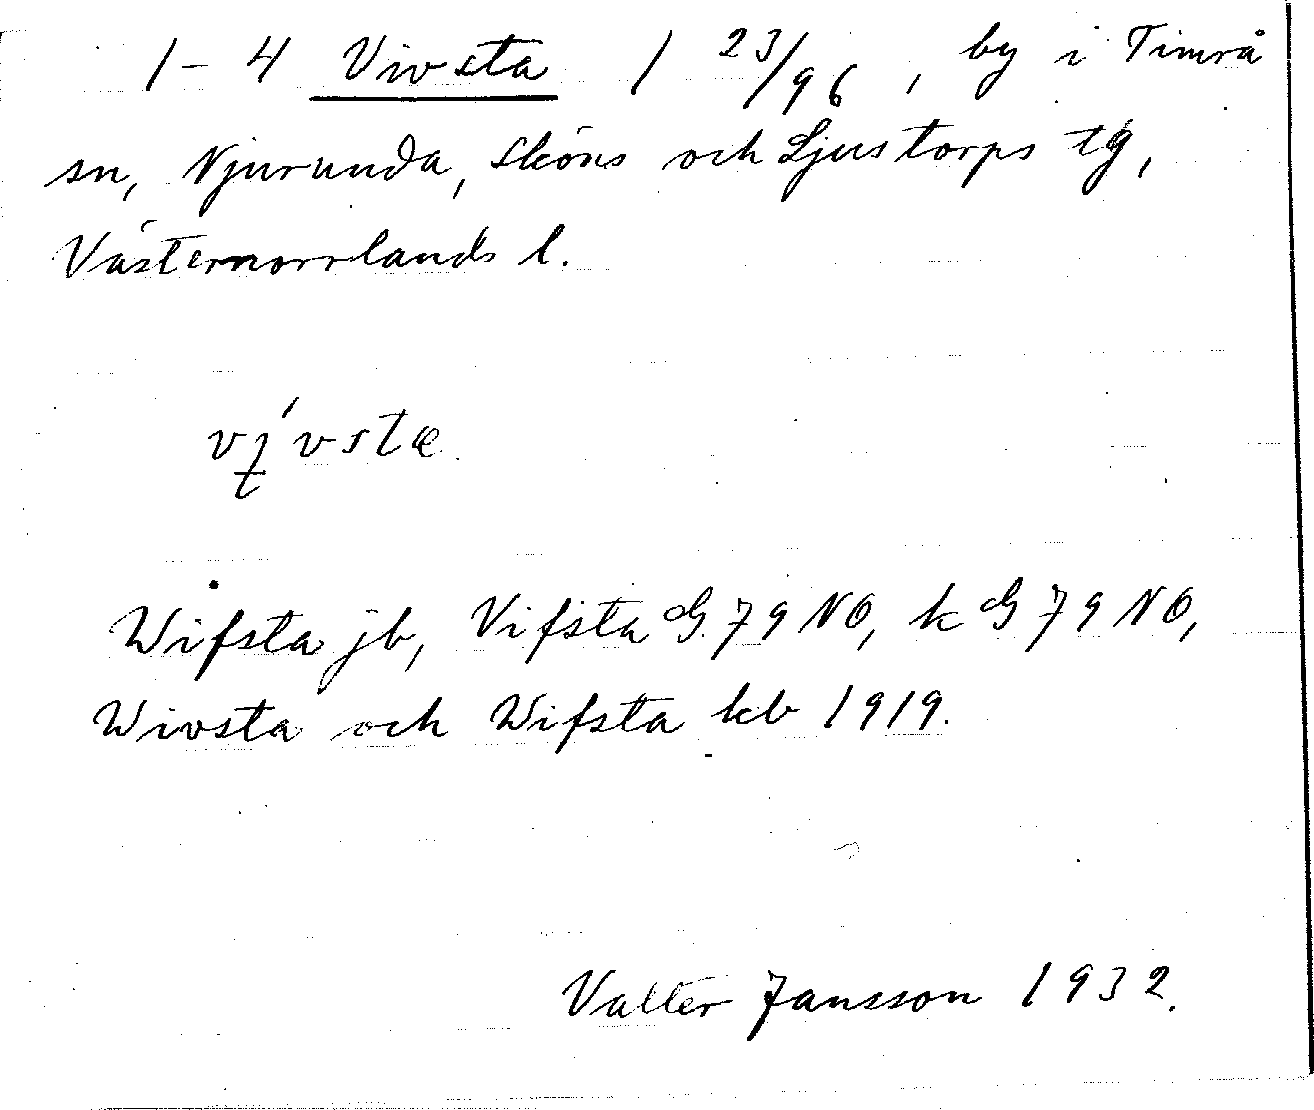 1-4 Vivsta 1 23/96, by i Timrå
sn, Njurunda, Sköns och Ljustorps tg,
Västernorrlands l.
Wifsta jb, Vifsta G. 79 NO, k G 79 NO,
Wivsta och Wifsta kb 1919.
Valter Jansson 1932.